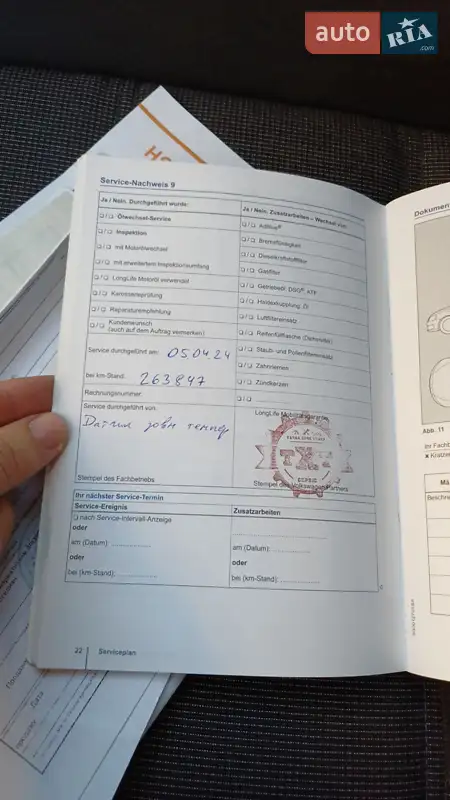 auto RIA.com
Service-Nachweis 9
Ja / Nein, Durchgeführt wurde:
❑ / ❑ Ölwechsel-Service
❑ / ❑ Inspektion
❑ / ❑ mit Motorölwechsel
❑ / ❑ mit erweitertem Inspektionsumfang
❑ / ❑ LongLife Motoröl verwendet
❑ / ❑ Karosserieprüfung
❑ / ❑ Reparaturempfehlung
❑ / ❑ Kundenwunsch
(auch auf dem Auftrag vermerken!)
Service durchgeführt am: 050424
bei km-Stand: 263847
Rechnungsnummer:
Service durchgeführt von:
Датчик зовн темпер
Stempel des Fachbetriebs
Ja / Nein, Zusatzarbeiten – Wechsel von:
❑ / ❑ AdBlue®
❑ / ❑ Bremsflüssigkeit
❑ / ❑ Dieselkraftstofffilter
❑ / ❑ Gasfilter
❑ / ❑ Getriebeöl: DSG®, ATF
❑ / ❑ Haldexkupplung: Öl
❑ / ❑ Luftfiltereinsatz
❑ / ❑ Reifenfüllflasche (Dichtmittel)
❑ / ❑ Staub- und Pollenfiltereinsatz
❑ / ❑ Zahnriemen
❑ / ❑ Zündkerzen
❑ / ❑
LongLife Mobilitätsgarantie
Stempel des Volkswagen Partners
Ihr nächster Service-Termin
Service-Ereignis
Zusatzarbeiten
❑ nach Service-Intervall-Anzeige
oder
am (Datum):
oder
bei (km-Stand):
am (Datum):
oder
bei (km-Stand):
22 Serviceplan
Dokumen
Abb. 11
Ihr Fachb
■ Kratze
Mä
Beschrei
Дата